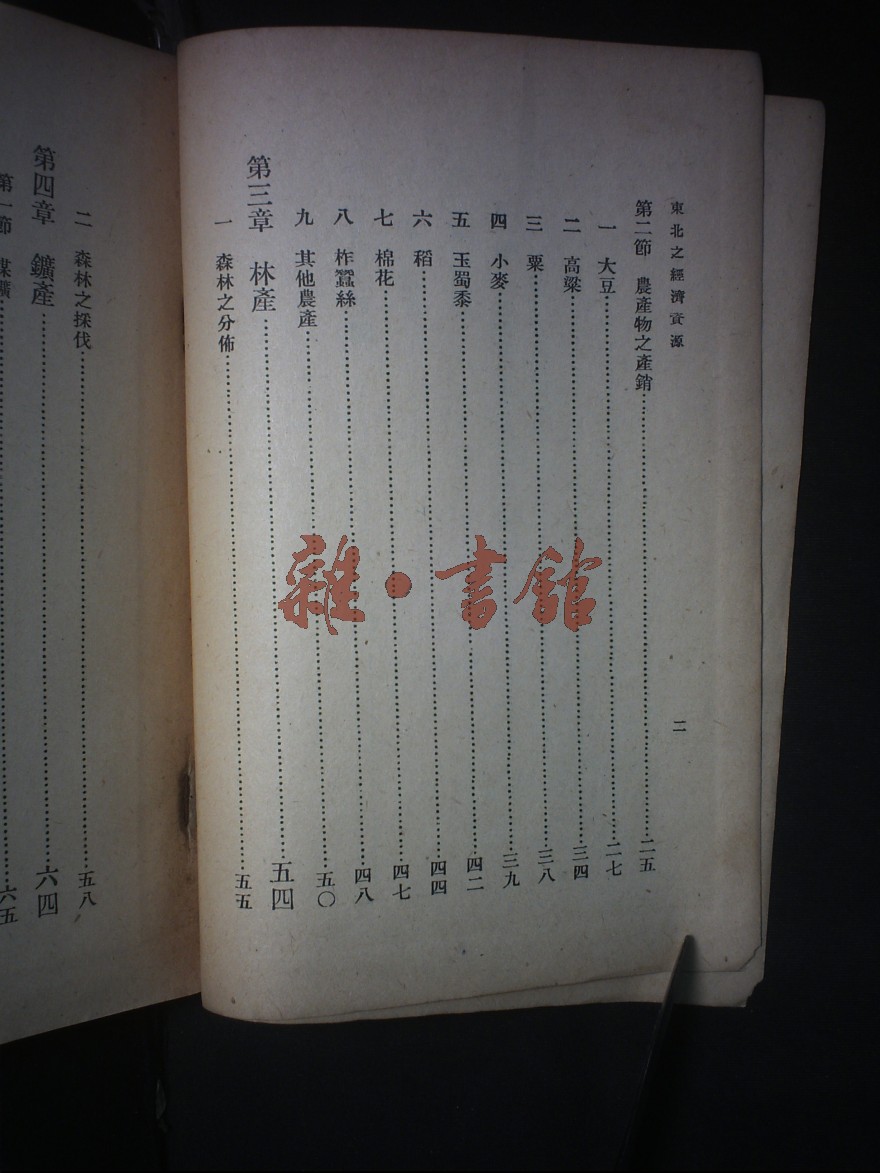 東北之經濟資源
二
第二節 農產物之產銷……二五
一 大豆……二七
二 高粱……三四
三 粟……三八
四 小麥……三九
五 玉蜀黍……四二
六 稻……四四
七 棉花……四七
八 柞蠶絲……四八
九 其他農產……五〇
第三章 林產……五四
一 森林之分佈……五五
二 森林之採伐……五八
第四章 鑛產……六四
第一節 煤鑛……六五
雜·書館